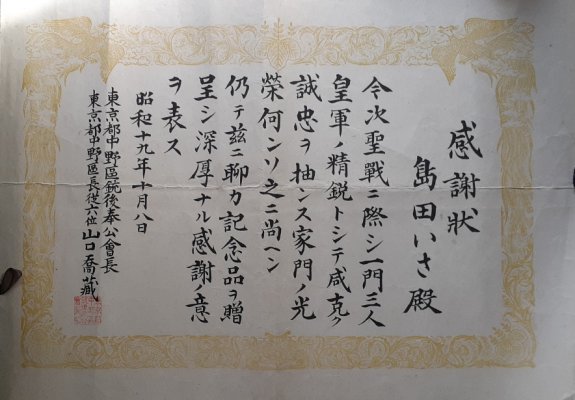 感謝狀
島田いさ殿
今次聖戰ニ際シ一門三人
皇軍ノ精銳トシテ咸克ク
誠忠ヲ抽ンス家門ノ光
榮何ンソ之ニ尚ヘン
仍テ茲ニ聊カ記念品ヲ贈
呈シ深厚ナル感謝ノ意
ヲ表ス
昭和十九年十月八日
東京都中野區銃後奉公會長
東京都中野區長從六位 山口喬藏